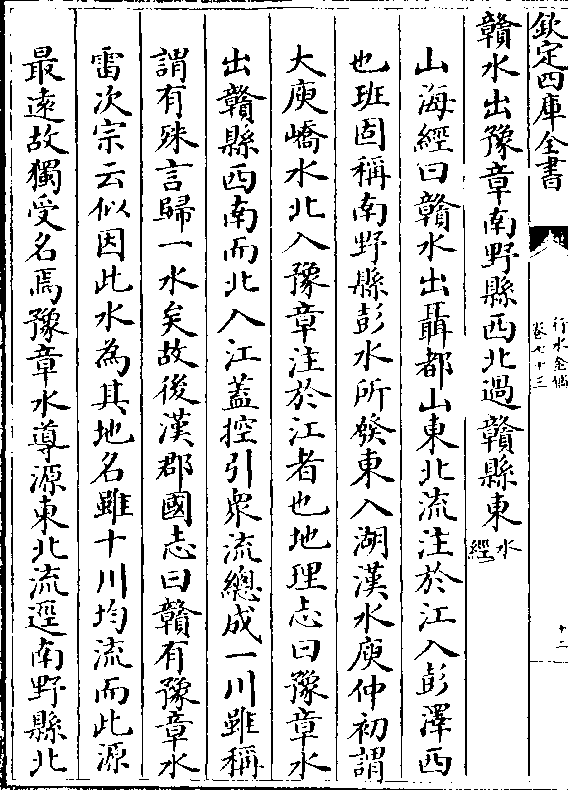 欽定四庫全書
行水金鑑
卷七十三
十二
贛水出豫章南野縣西北過贛縣東水經
山海經曰贛水出聶都山東北流注於江入彭澤西
也班固稱南野縣彭水所發東入湖漢水庾仲初謂
大庾嶠水北入豫章注於江者也地理志曰豫章水
出贛縣西南而北入江蓋控引衆流總成一川雖稱
謂有殊言歸一水矣故後漢郡國志曰贛有豫章水
雷次宗云似因此水為其地名雖十川均流而此源
最遠故獨受名焉豫章水導源東北流逕南野縣北